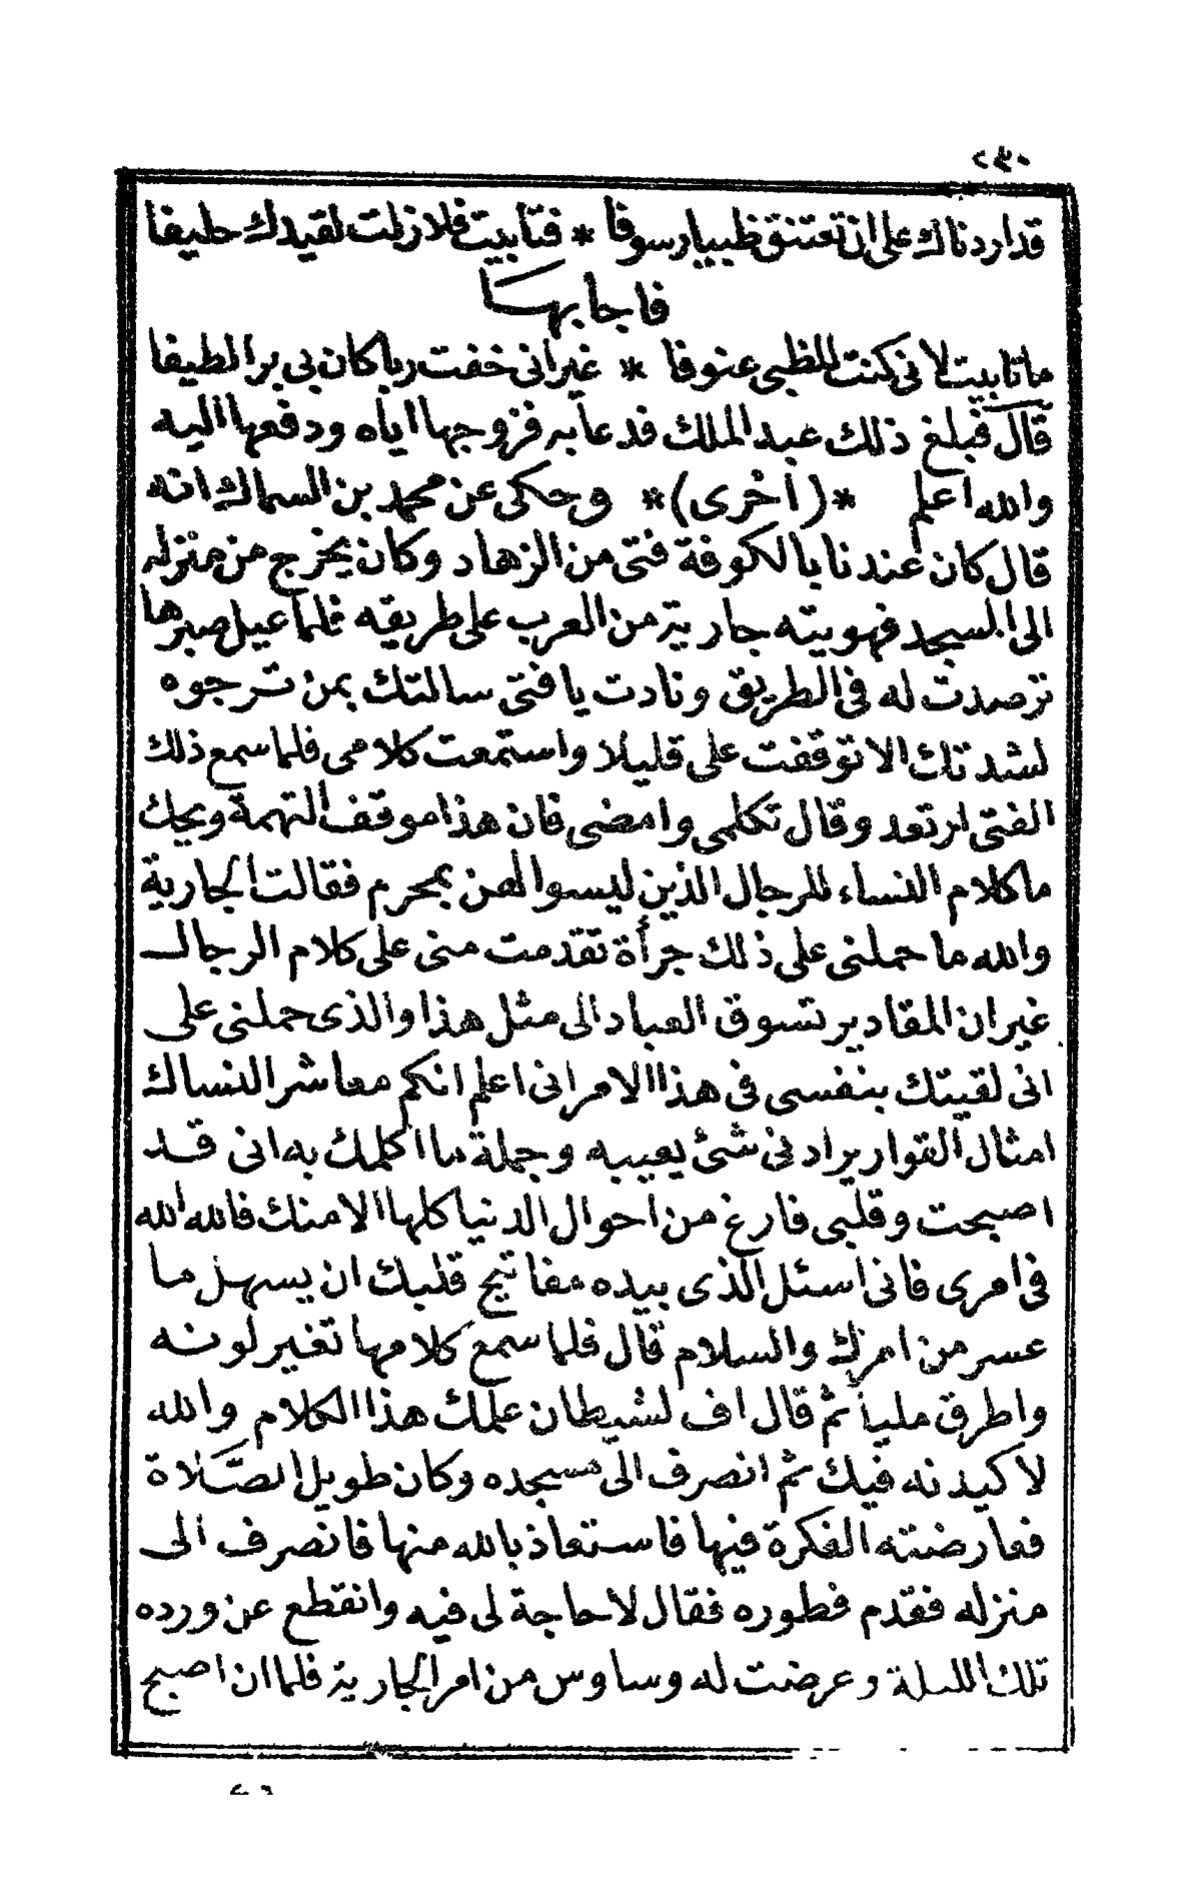 ٢٣٠
قد اردناك على ان تعتنق ظبيا رسوفا * فتأبيت فلا زلت لقيدك حليفا
فاجابها
ما تأبيت لانى كنت للظبى عنوفا * غير انى خفت ربا كان بى برا لطيفا
قال فبلغ ذلك عبد الملك فدعا به فزوجها اياه ودفعها اليه
والله اعلم *(أخرى)* وحكى عن محمد بن السماك انه
قال كان عندنا بالكوفة فتى من الزهاد وكان يخرج من منزله
الى المسجد فهويته جارية من العرب على طريقه فلما عيل صبرها
ترصدت له فى الطريق ونادت يا فتى سالتك بمن ترجوه
لشدتك الا توقفت على قليلا واستمعت كلامى فلما سمع ذلك
الفتى ارتعد وقال تكلمى وامضى فان هذا موقف التهمة ويحك
ما كلام النساء للرجال الذين ليسوا لهن بمحرم فقالت الجارية
والله ما حملنى على ذلك جرأة تقدمت منى على كلام الرجال
غير ان المقادير تسوق العباد الى مثل هذا والذى حملنى على
انى لقيتك بنفسى فى هذا الامر انى اعلم انكم معاشر النساك
امثال القوارير ادنى شئ يعيبه وجملة ما اكلمك به انى قد
اصبحت وقلبى فارغ من احوال الدنيا كلها الا منك فالله الله
فى امرى فانى اسئل الذى بيده مفاتيح قلبك ان يسهل ما
عسر من امرك والسلام قال فلما سمع كلامها تغير لونه
واطرق مليا ثم قال اف لشيطان علمك هذا الكلام والله
لاكيدنه فيك ثم انصرف الى مسجده وكان طويل الصلاة
فعارضته الفكرة فيها فاستعاذ بالله منها فانصرف الى
منزله فقدم فطوره فقال لا حاجة لى فيه وانقطع عن ورده
تلك الليلة وعرضت له وساوس من امر الجارية فلما ان اصبح